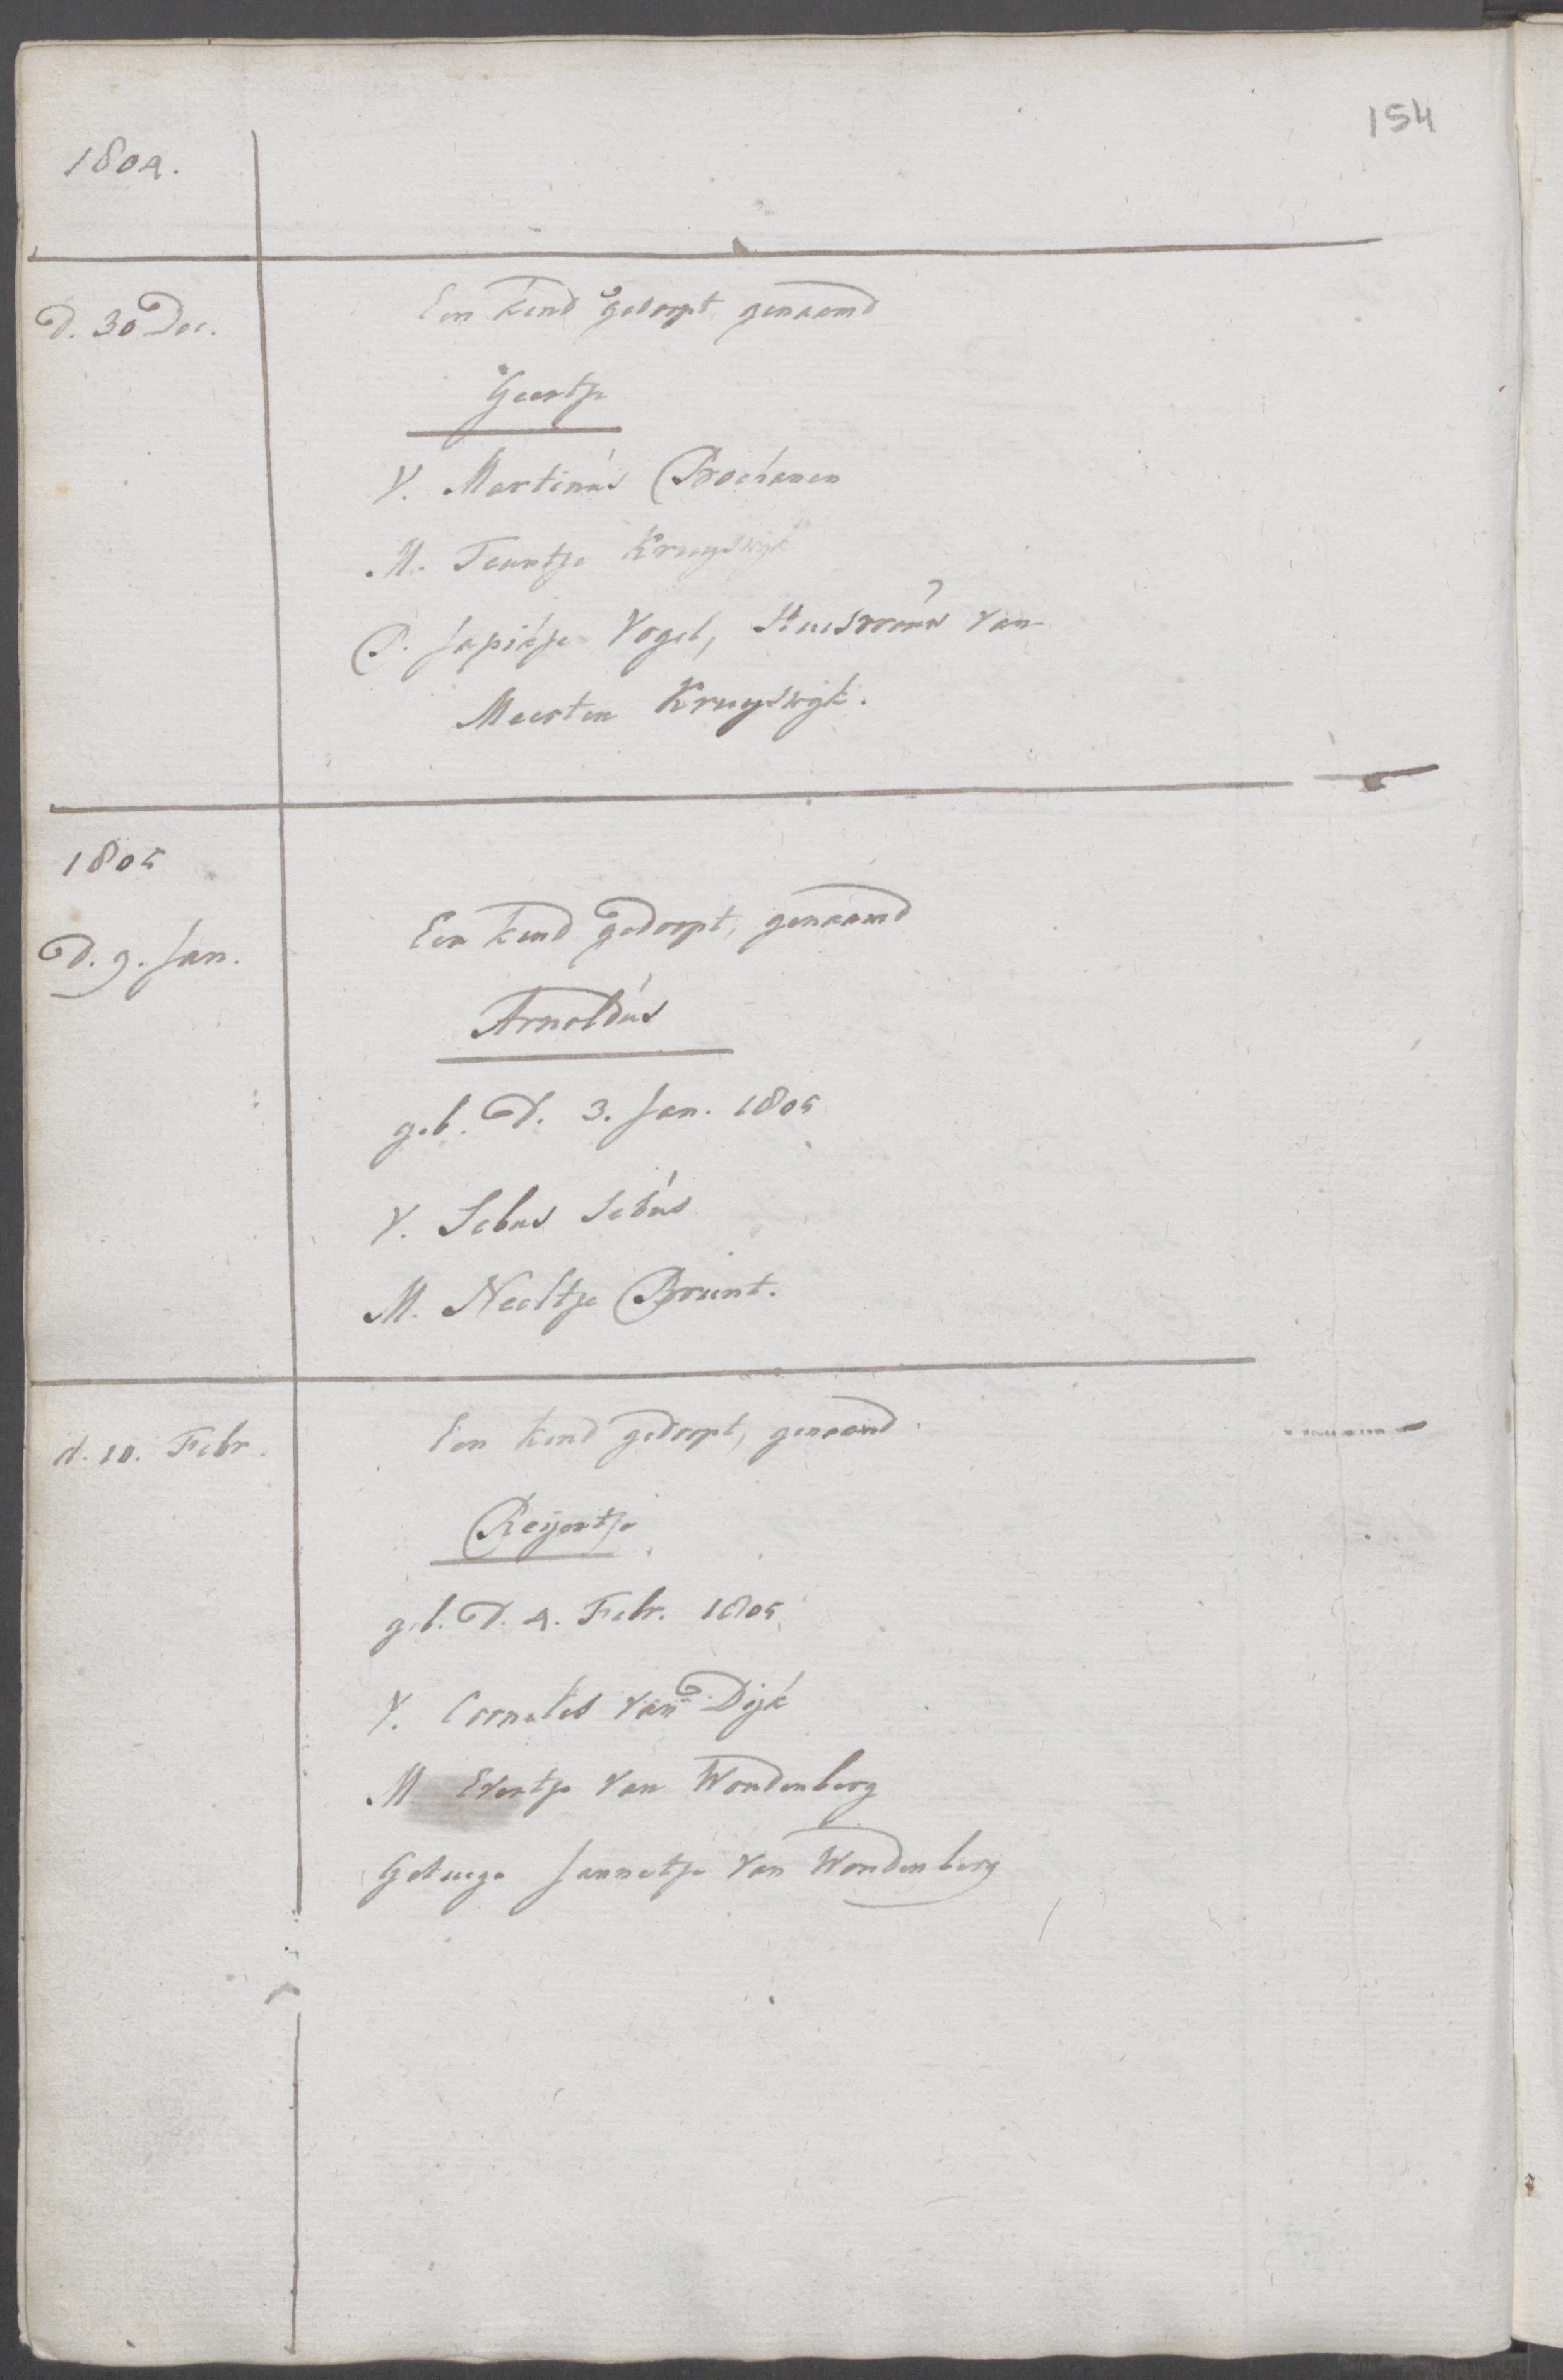 154
1804.
D. 30 Dec.
Een kind gedoopt genaamd
Geertje
V. Martinus
M. Teuntje Kruyswyk
P. Japikje Vogel, Huisvrouw van
Meerten Kruyswyk.
1805
D. 9. Jan.
Een kind gedoopt, genaamd
Arnoldus
geb. D. 3. Jan. 1805
V. Sebus Sebus
M. Neeltje Brunt.
d. 10. Febr.
Een kind gedoopt, genaamd
Reijertje
geb. D. 4. Febr. 1805
V. Cornelis van Dijk
M Evertje van Woudenberg
Getuige Jannetje van Woudenberg